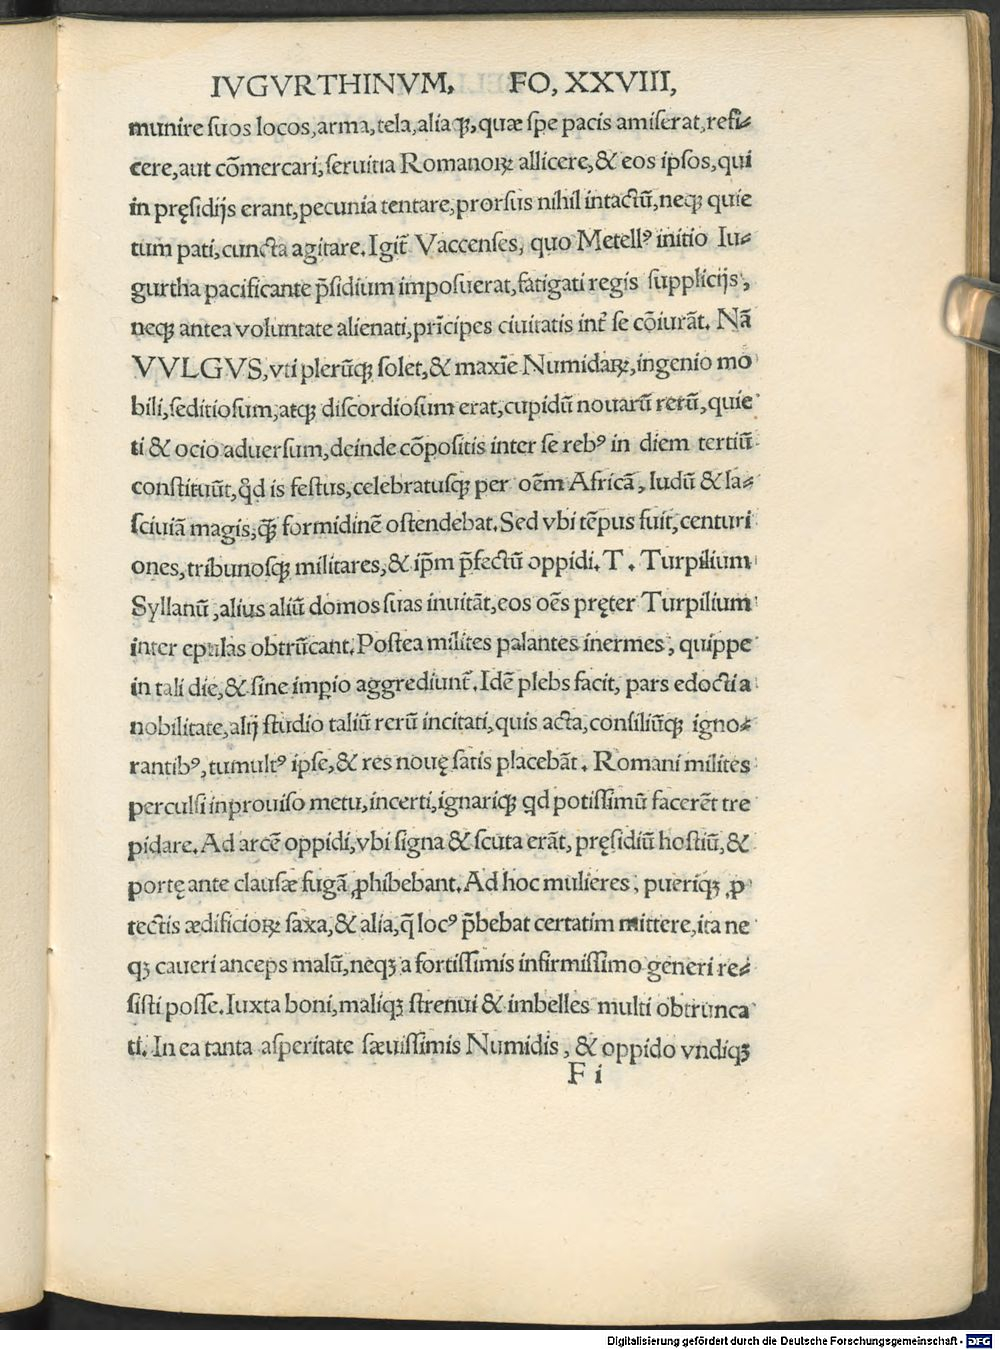 IVGVRTHINVM, FO, XXVIII,
munire ſuos locos,arma,tela,aliaqꝫ,quæ ſpe pacis amiſerat,refi⸗
cere,aut cõmercari,ſeruitia Romanoꝝ allicere,& eos ipſos,qui
in pręſidijs erant,pecunia tentare,prorſus nihil intactũ,neqꝫ quie
tum pati,cuncta agitare.Igit̃ Vaccenſes, quo Metellꝰ initio Iu⸗
gurtha pacificante p̃ſidium impoſuerat,fatigati regis ſupplicijs,
neqꝫ antea voluntate alienati,prĩcipes ciuitatis int̃ ſe cõiurãt. Nã
VVLGVS,vti plerũqꝫ ſolet,& maxĩe Numidaꝝ,ingenio mo
bili,ſeditioſum,atqꝫ diſcordioſum erat,cupidũ nouarũ rerũ,quie
ti & ocio aduerſum,deinde cõpoſitis inter ſe rebꝰ in diem tertiũ
conſtituũt,q̃d is feſtus,celebratuſqꝫ per oẽm Africã, ludũ & la⸗
ſciuiã magis,q̃ꝫ formidinẽ oſtendebat.Sed vbi tẽpus fuit,centuri
ones,tribunoſqꝫ militares,& ip̃m p̃fectũ oppidi. T. Turpilium
Syllanũ,alius aliũ domos ſuas inuitãt,eos oẽs pręter Turpilium
inter epulas obtrũcant.Poſtea milites palantes inermes, quippe
in tali die,& ſine impio aggrediunt̃.Idẽ plebs facit, pars edocti a
nobilitate,alij ſtudio taliũ rerũ incitati,quis acta,conſiliũqꝫ igno⸗
rantibꝰ,tumultꝰ ipſe,& res nouę ſatis placebãt. Romani milites
perculſi inprouiſo metu,incerti,ignariqꝫ qd potiſſimũ facerẽt tre
pidare.Ad arcẽ oppidi,vbi ſigna & ſcuta erãt, pręſidiũ hoſtiũ,&
portę ante clauſæ fugã ꝓhibebant.Ad hoc mulieres, pueriqꝫ ꝓ
tectis ædificioꝝ ſaxa,& alia,q̃ locꝰ p̃bebat certatim mittere,ita ne
qꝫ caueri anceps malũ,neqꝫ a fortiſſimis infirmiſſimo generi re⸗
ſiſti poſſe.Iuxta boni,maliqꝫ ſtrenui & imbelles multi obtrunca
ti. In ea tanta aſperitate ſæuiſſimis Numidis, & oppido vndiqꝫ
F i
Digitalisierung gefördert durch die Deutsche Forschungsgemeinschaft - DFG